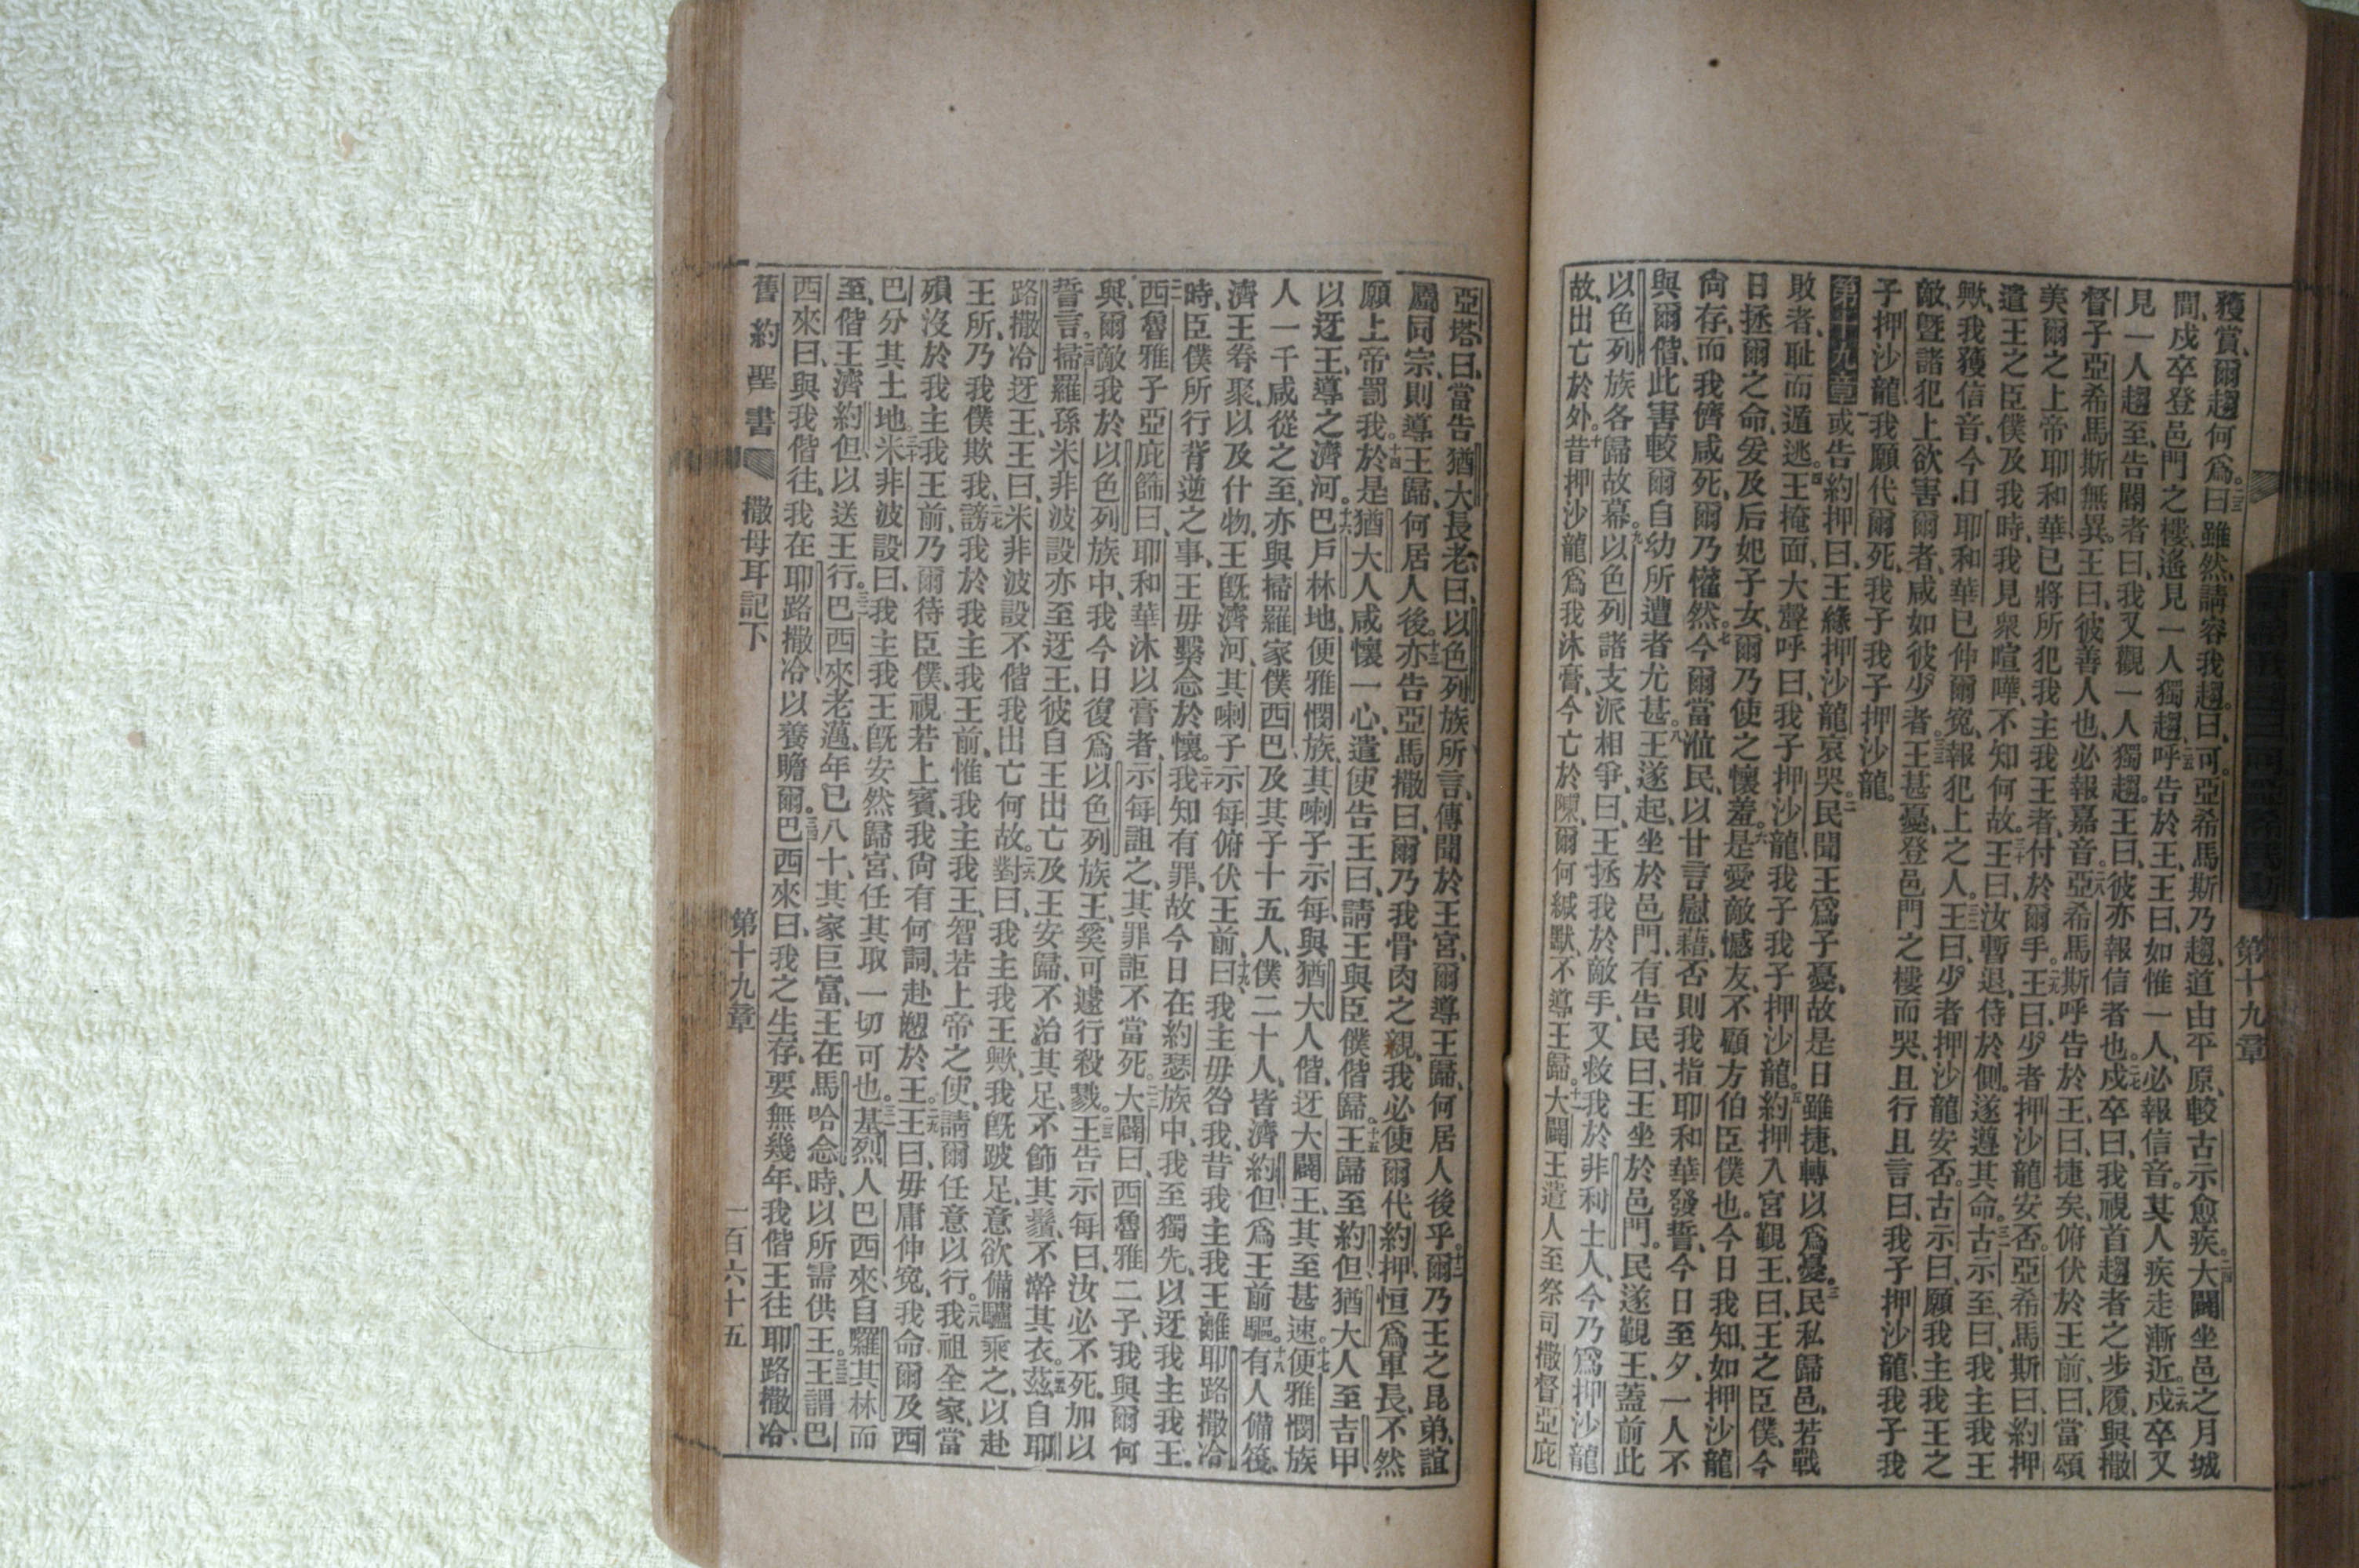 獲賞、爾趨何爲。二三曰、雖然、請容我趨。曰、可。亞希馬斯乃趨、道由平原、較古示愈疾。二四大闢坐邑之月城
間、戍卒登邑門之樓、遙見一人獨趨、二五呼告於王、王曰、如惟一人、必報信音。其人疾走漸近。二六戍卒又
見一人趨至、告閽者曰、我又觀一人獨趨。王曰、彼亦報信者也。二七戍卒曰、我視首趨者之步履、與撒
督子亞希馬斯無異。王曰、彼善人也、必報嘉音。二八亞希馬斯呼告於王、曰、捷矣、俯伏於王前、曰、當頌
美爾之上帝耶和華、已將所犯我主我王者、付於爾手。二九王曰、少者押沙龍安否。亞希馬斯曰、約押
遣王之臣僕及我時、我見衆喧嘩、不知何故。三十王曰、汝暫退、侍於側。遂遵其命。三一古示至、曰、我主我王
歟、我獲信音、今日耶和華已伸爾寃、報犯上之人。三二王曰、少者押沙龍安否。古示曰、願我主我王之
敵、曁諸犯上欲害爾者、咸如彼少者。三三王甚憂、登邑門之樓而哭、且行且言曰、我子押沙龍、我子我
子押沙龍、我願代爾死、我子我子押沙龍。
第十九章 一或告約押曰、王緣押沙龍哀哭。二民聞王爲子憂、故是日雖捷、轉以爲憂。三民私歸邑、若戰
敗者、耻而遁逃。四王掩面、大聲呼曰、我子押沙龍、我子我子押沙龍。五約押入宮覲王、曰、王之臣僕、今
日拯爾之命、爰及后妃子女、爾乃使之懷羞。六是愛敵憾友、不顧方伯臣僕也。今日我知、如押沙龍
尙存、而我儕咸死、爾乃懽然。七今爾當涖民、以甘言慰藉、否則我指耶和華發誓、今日至夕、一人不
與爾偕、此害較爾自幼所遭者尤甚。八王遂起、坐於邑門、有告民曰、王坐於邑門。民遂覲王、蓋前此
以色列族各歸故幕。九以色列諸支派相爭、曰、王拯我於敵手、又救我於非利士人、今乃爲押沙龍
故、出亡於外。十昔押沙龍爲我沐膏、今亡於陳、爾何緘默、不導王歸。十一大闢王遣人至祭司撒督亞庇
第十九章
亞塔、曰、當告猶大長老曰、以色列族所言、傳聞於王宮、爾導王歸、何居人後乎。十二爾乃王之昆弟、誼
屬同宗、則導王歸、何居人後。十三亦告亞馬撒曰、爾乃我骨肉之親、我必使爾代約押、恒爲軍長、不然
願上帝罰我。十四於是猶大人咸懷一心、遣使告王曰、請王與臣僕偕歸。十五王歸至約但、猶大人至吉甲
以迓王、導之濟河。十六巴戶林地、便雅憫族、其喇子示每、與猶大人偕、迓大闢王、其至甚速。十七便雅憫族
人一千咸從之至、亦與掃羅家僕西巴、及其子十五人、僕二十人、皆濟約但、爲王前驅。十八有人備筏
濟王眷聚、以及什物、王旣濟河、其喇子示每俯伏王前、十九曰、我主毋咎我、昔我主我王離耶路撒冷
時、臣僕所行背逆之事、王毋繫念於懷。二十我知有罪、故今日在約瑟族中、我至獨先、以迓我主我王。
二一西魯雅子亞庇篩曰、耶和華沐以膏者、示每詛之、其罪詎不當死。二二大闢曰、西魯雅二子、我與爾何
與、爾敵我於以色列族中、我今日復爲以色列族王、奚可遽行殺戮。二三王告示每曰、汝必不死、加以
誓言。二四掃羅孫米非波設亦至迓王、彼自王出亡及王安歸、不治其足、不飾其鬚、不澣其衣。二五茲自耶
路撒冷迓王、王曰、米非波設不偕我出亡何故。二六對曰、我主我王歟、我旣跛足、意欲備驢乘之、以赴
王所、乃我僕欺我、二七謗我於我主我王前、惟我主我王、智若上帝之使、請爾任意以行。二八我祖全家、當
殞沒於我主我王前、乃爾待臣僕、視若上賓、我尙有何詞、赴愬於王。二九王曰、毋庸伸寃、我命爾及西
巴分其土地。三十米非波設曰、我主我王旣安然歸宮、任其取一切可也。三一基烈人巴西來、自囉其林而
至、偕王濟約但、以送王行。三二巴西來老邁、年已八十、其家巨富、王在馬哈念時、以所需供王。三三王謂巴
西來曰、與我偕往、我在耶路撒冷以養贍爾。三四巴西來曰、我之生存、要無幾年、我偕王往耶路撒冷、
舊約聖書 撒母耳記下 第十九章 一百六十五